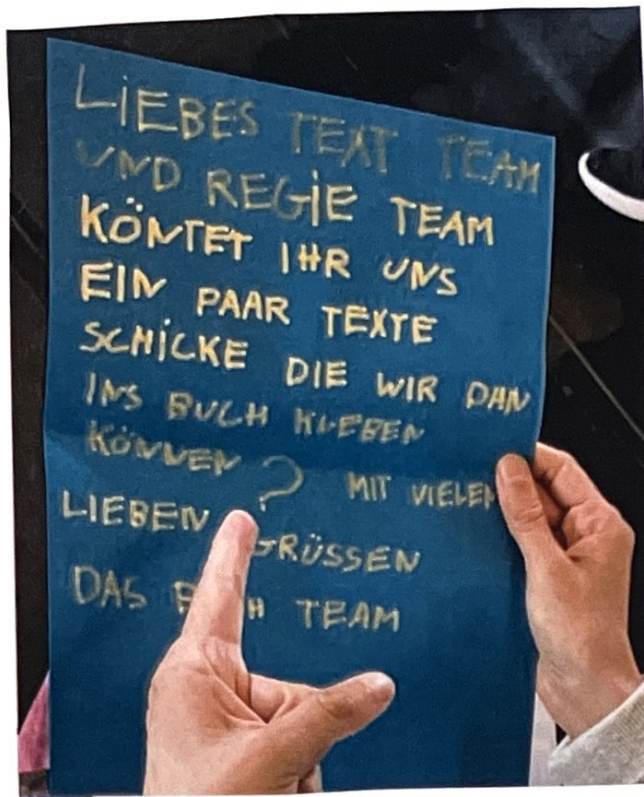 LIEBES TEXT TEAM
UND REGIE TEAM
KÖNTET IHR UNS
EIN PAAR TEXTE
SCHICKE DIE WIR DAN
INS BUCH KLEBEN
KÖNNEN? MIT VIELEN
LIEBEN GRÜSSEN
DAS TEAM